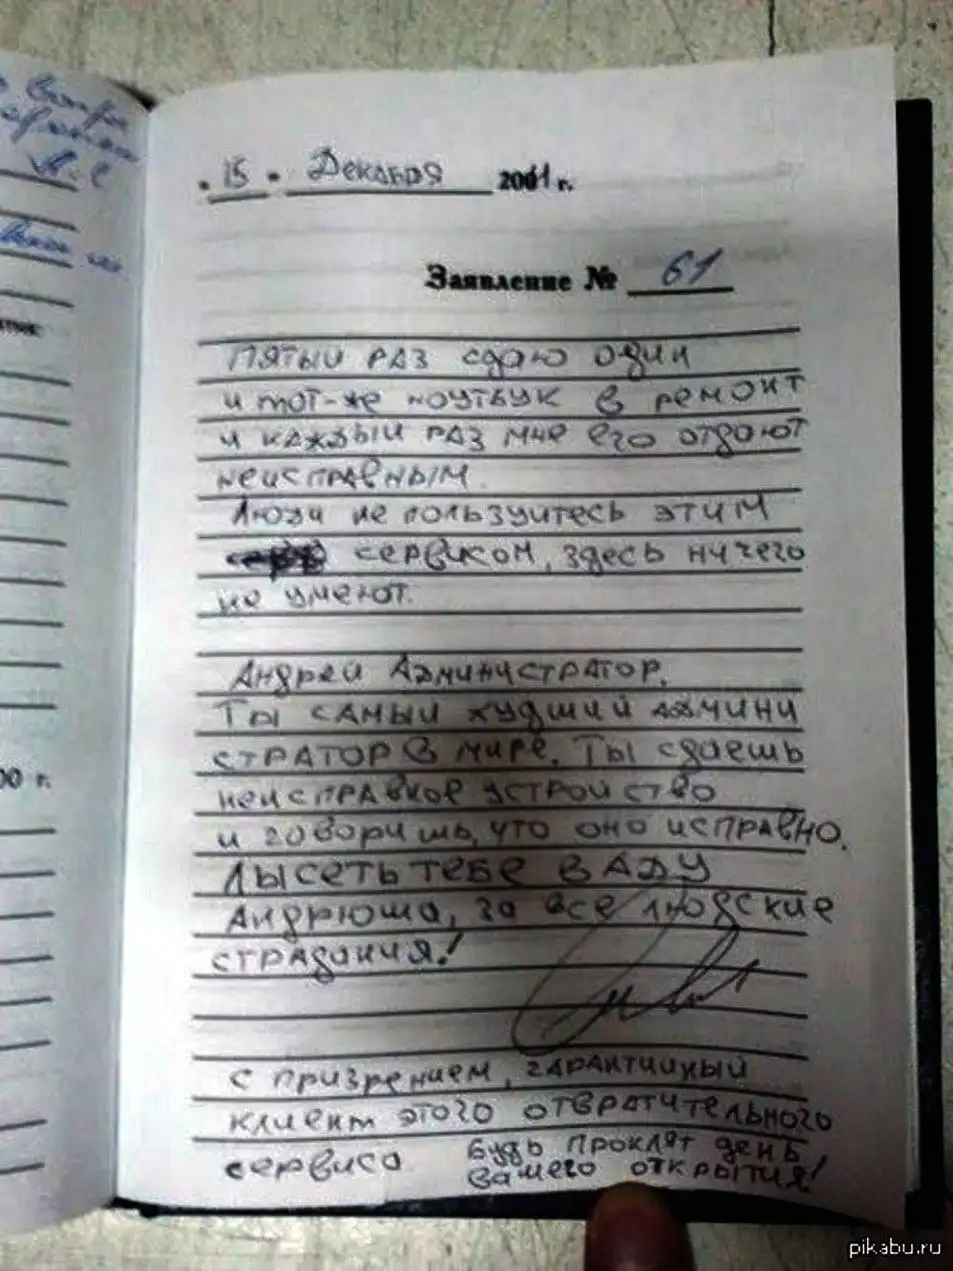 15 Декабря 2011 г.
Заявление № 61
Пятый раз сдаю один
и тот-же ноутбук в ремонт
и каждый раз мне его отдают
неисправным.
Люди не пользуйтесь этим
сервисом, здесь ничего
не умеют.
Андрей Администратор.
Ты самый худший админи
стратор в мире. Ты сдаешь
неисправное устройство
и говоришь, что оно исправно.
Лысеть тебе в аду
Андрюша, за все людские
страдания!
с призрением, гарантийный
клиент этого отвратительного
сервиса
Будь проклят день
вашего открытия!
00 г.
pikabu.ru